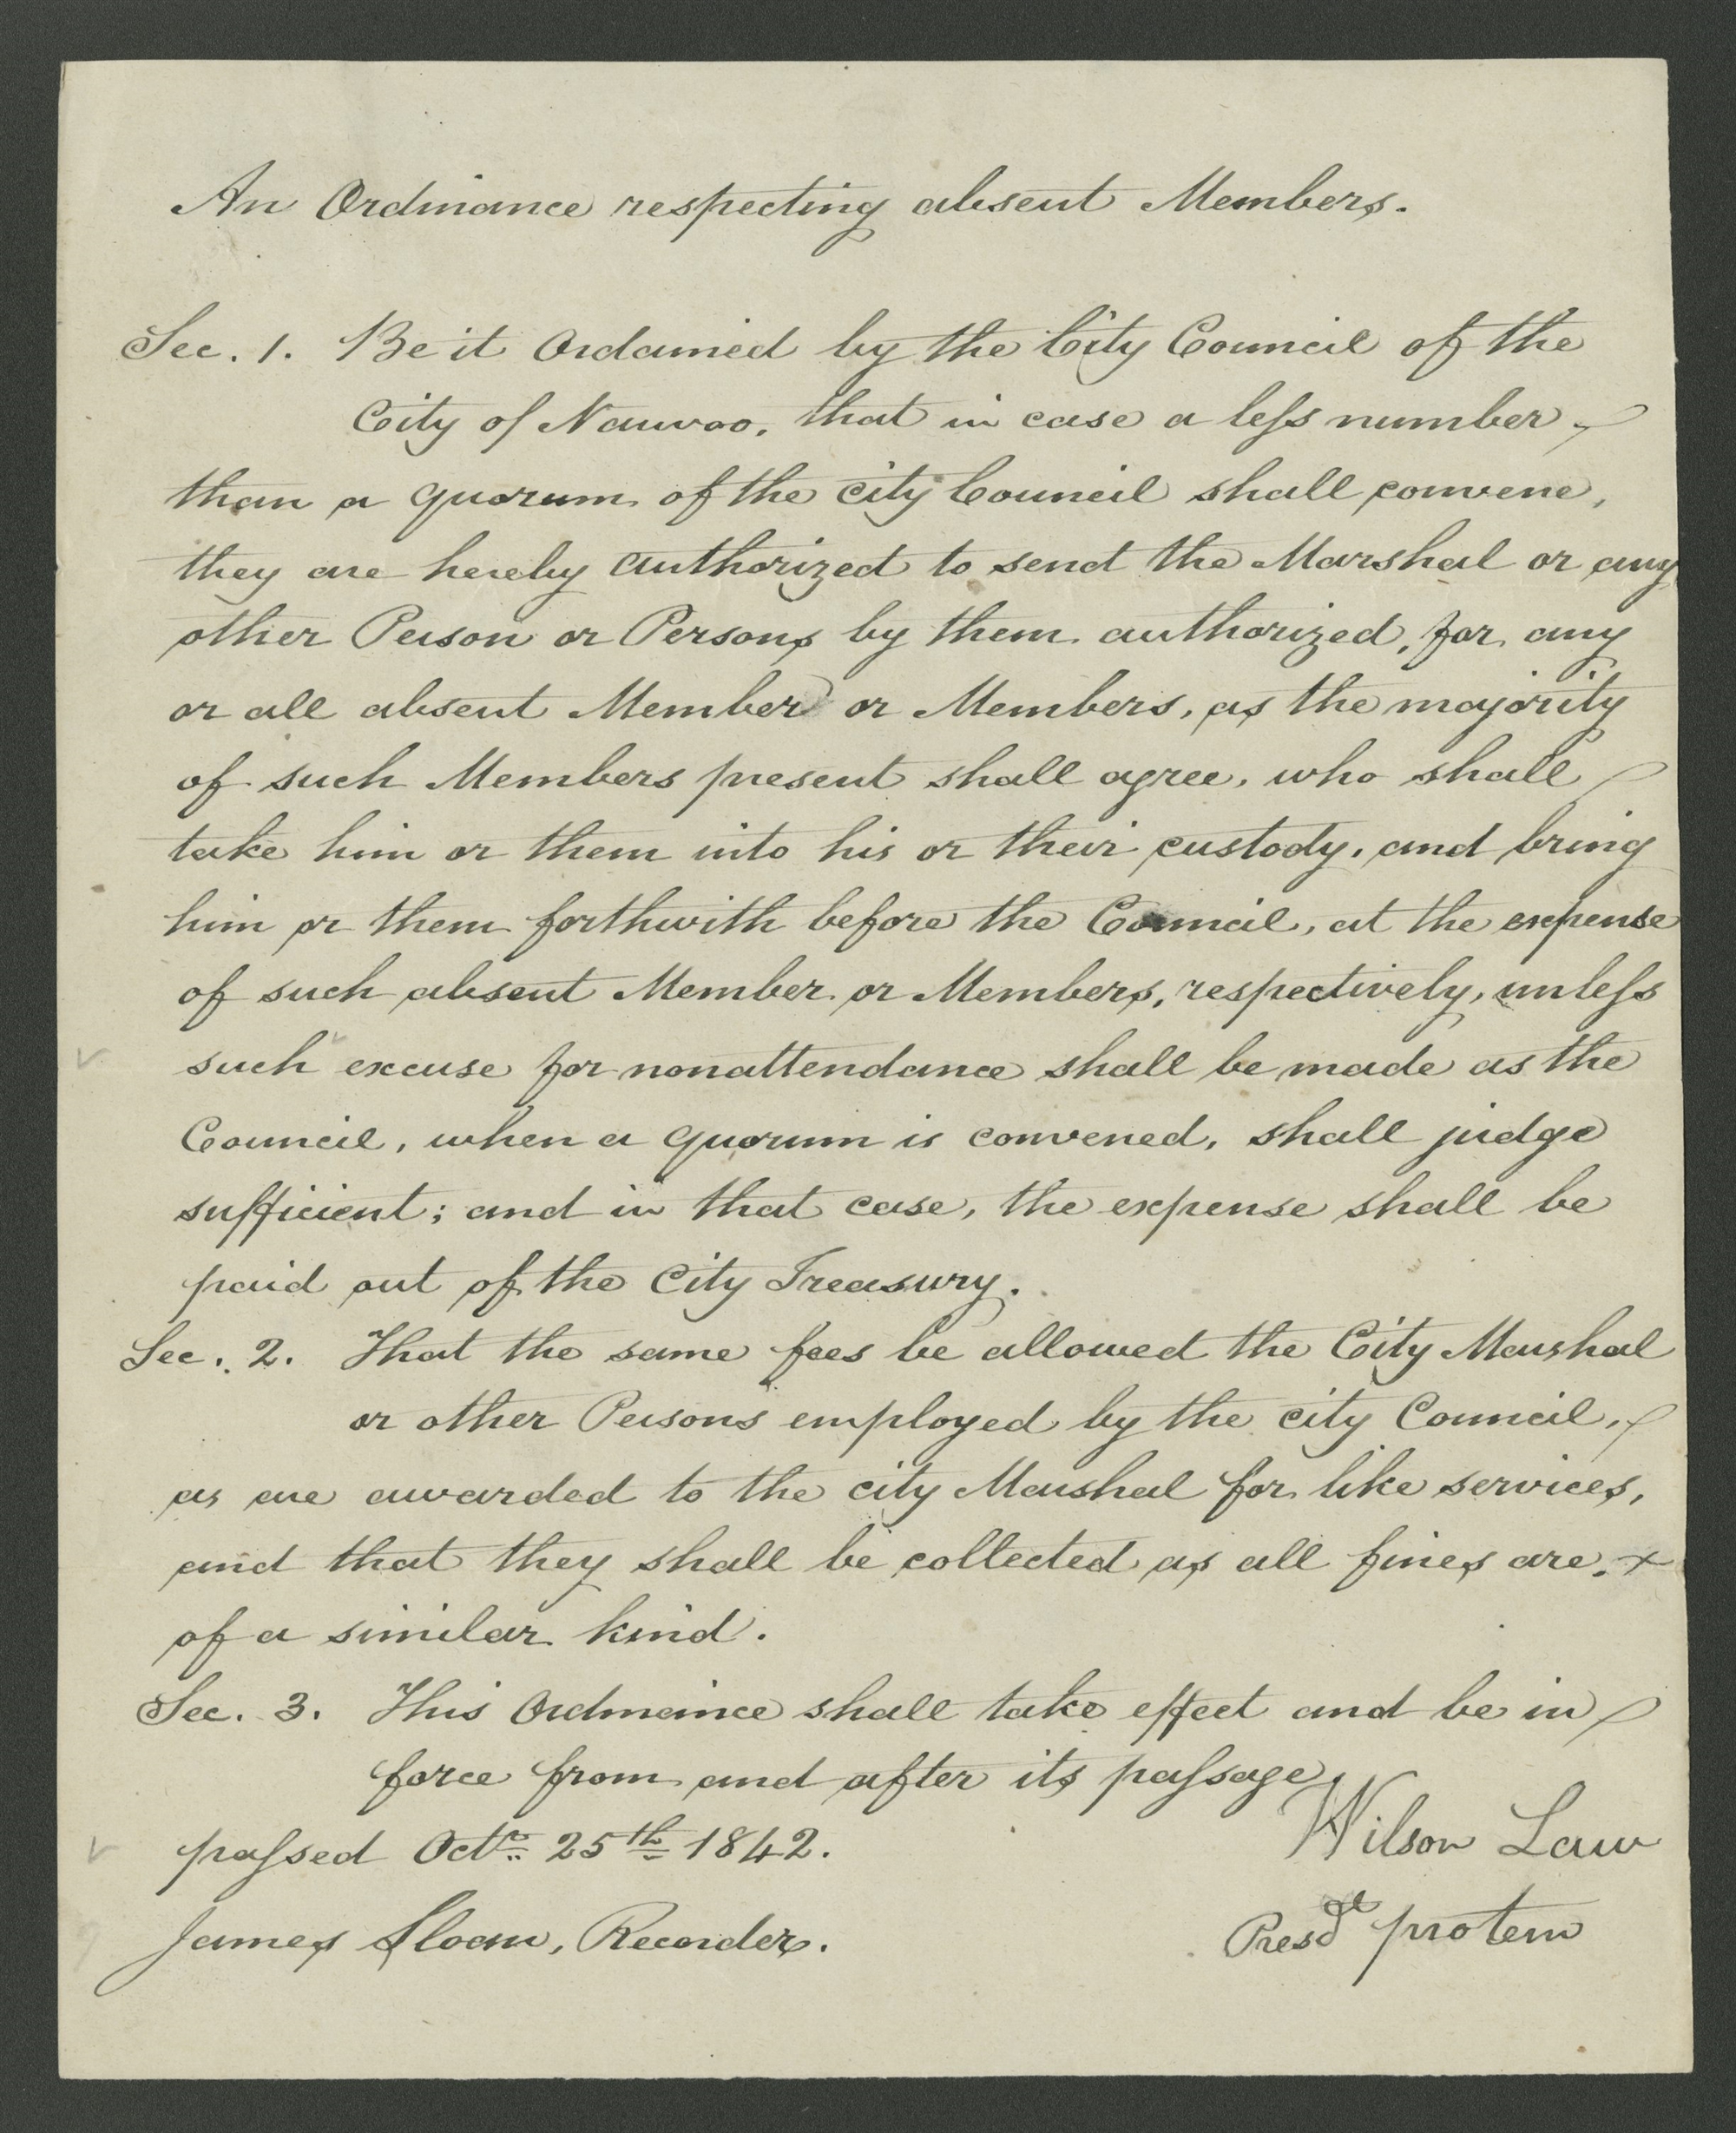 An Ordinance respecting absent Members.
Sec. 1. Be it Ordained by the City Council of the
City of Nauvoo, that in case a leſs number
than a quorum of the City Council shall convene,
they are hereby authorized to send the Marshal or any
other Person or Persons by them authorized, for any
or all absent Member or Members, as the majority
of such Members present shall agree, who shall
take him or them into his or their custody, and bring
him or them forthwith before the Council, at the expense
of such absent Member or Members, respectively, unleſs
such excuse for nonattendance shall be made as the
Council, when a quorum is convened, shall judge
sufficient; and in that case, the expense shall be
paid out of the City Treasury.
Sec. 2. That the same fees be allowed the City Marshal
or other Persons employed by the city Council,
as are awarded to the city Marshal for like services,
and that they shall be collected as all fines are,
of a similar kind.
Sec. 3. This Ordinance shall take effect and be in
force from and after its paſsage.
paſsed Octr. 25th 1842.
Wilson Law
James Sloan, Recorder.
Presdt protem